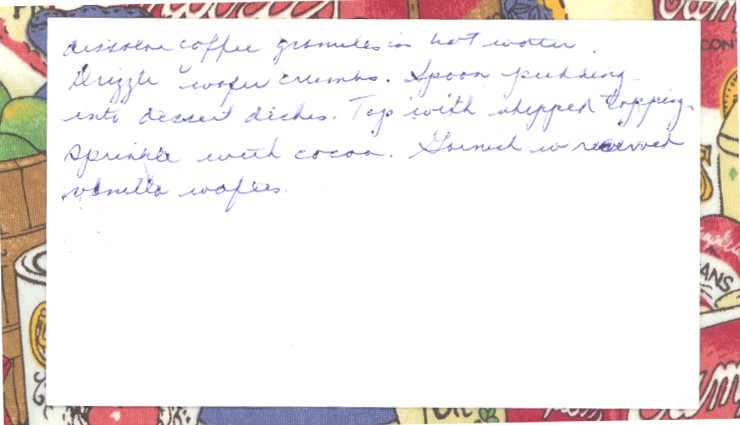 dissolve coffee granules in hot water.
Drizzle wafer crumbs. Spoon pudding
into dessert dishes. Top with whipped topping.
Sprinkle with cocoa. Garnish w reserved
vanilla wafers.
CON
ANS